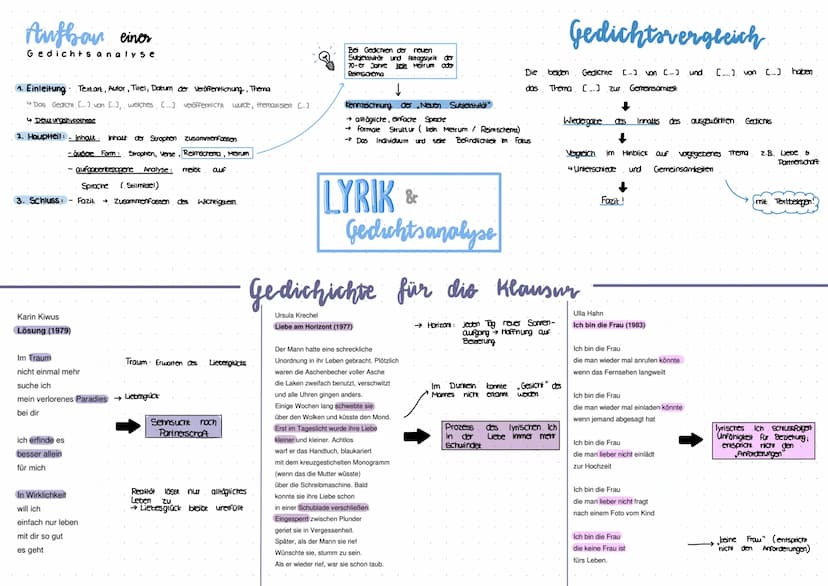 Aufbau einer
Gedichtsanalyse
1. Einleitung: Textart, Autor, Titel, Datum der Veröffentlichung, Thema
↳ Das Gedicht [...] von [...], welches [...] veröffentlicht wurde, thematisiert [...]
↳ Deutungshypothese
2. Hauptteil: - Inhalt: Inhalt der Strophen zusammenfassen
- äußere Form: Strophen, Verse, Reimschema, Metrum
- aufgabenbezogene Analyse: meist auf
Sprache (Stilmittel)
3. Schluss: - Fazit → Zusammenfassen des Wichtigsten
Bei Gedichten der neuen
Subjektivität und Alltagslyrik der
70-er Jahre kein Metrum oder
Reimschema
Kennzeichnung der „Neuen Subjektivität"
→ alltägliche, einfache Sprache
→ formale Struktur (kein Metrum / Reimschema)
→ Das Individuum und seine Befindlichkeit im Fokus
LYRIK &
Gedichtsanalyse
Gedichtsvergleich
Die beiden Gedichte [...] von [...] und [...] von [...] haben
das Thema [...] zur Gemeinsamkeit
Wiedergabe des Inhalts des ausgewählten Gedichts
Vergleich im Hinblick auf vorgegebenes Thema z.B. Liebe &
Partnerschaft
↳ Unterschiede und Gemeinsamkeiten
Fazit!
mit Textbelegen!
Gedichichte für die Klausur
Karin Kiwus
Lösung (1979)
Im Traum
nicht einmal mehr
suche ich
mein verlorenes Paradies
bei dir
ich erfinde es
besser allein
für mich
In Wirklichkeit
will ich
einfach nur leben
mit dir so gut
es geht
Traum: Erwarten des Liebesglücks
→ Liebesglück
Sehnsucht nach
Partnerschaft
Realität lässt nur alltägliches
Leben zu
→ Liebesglück bleibt unerfüllt
Ursula Krechel
Liebe am Horizont (1977)
Der Mann hatte eine schreckliche
Unordnung in ihr Leben gebracht. Plötzlich
waren die Aschenbecher voller Asche
die Laken zweifach benutzt, verschwitzt
und alle Uhren gingen anders.
Einige Wochen lang schwebte sie
über den Wolken und küsste den Mond.
Erst im Tageslicht wurde ihre Liebe
kleiner und kleiner. Achtlos
warf er das Handtuch, blaukariert
mit dem kreuzgestichelten Monogramm
(wenn das die Mutter wüsste)
über die Schreibmaschine. Bald
konnte sie ihre Liebe schon
in einer Schublade verschließen.
Eingesperrt zwischen Plunder
geriet sie in Vergessenheit.
Später, als der Mann sie rief
Wünschte sie, stumm zu sein.
Als er wieder rief, war sie schon taub.
→ Horizont: jeden Tag neuer Sonnen-
aufgang → Hoffnung auf
Besserung
Im Dunkeln konnte „Gesicht" des
Mannes nicht erkannt werden
Prozess des lyrischen Ich
in der Liebe immer mehr
schwindet
Ulla Hahn
Ich bin die Frau (1983)
Ich bin die Frau
die man wieder mal anrufen könnte
wenn das Fernsehen langweilt
Ich bin die Frau
die man wieder mal einladen könnte
wenn jemand abgesagt hat
Ich bin die Frau
die man lieber nicht einlädt
zur Hochzeit
Ich bin die Frau
die man lieber nicht fragt
nach einem Foto vom Kind
Ich bin die Frau
die keine Frau ist
fürs Leben.
lyrisches Ich schlussfolgert
Unfähigkeit für Beziehung,
entspricht nicht den
„Anforderungen"
→ „keine Frau" (entspricht
nicht den Anforderungen)